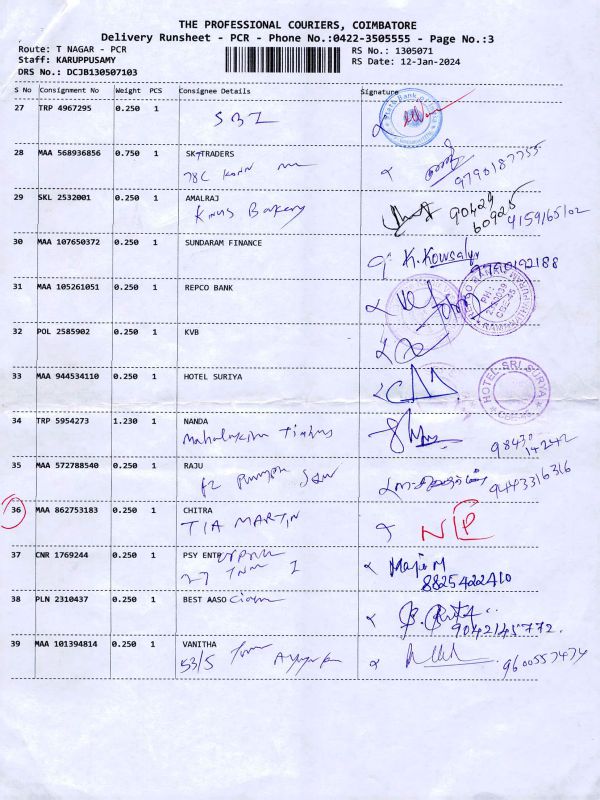 THE PROFESSIONAL COURIERS, COIMBATORE
Delivery Runsheet - PCR - Phone No.:0422-3505555 - Page No.:3
Route: T NAGAR - PCR RS No.: 1305071
Staff: KARUPPUSAMY RS Date: 12-Jan-2024
DRS No.: DCJB130507103
S No Consignment No Weight PCS Consignee Details Signature
27 TRP 4967295 0.250 1 SBI
28 MAA 568936856 0.750 1 SKTTRADERS
78C 9790187755
29 SKL 2532001 0.250 1 AMALRAJ
Bakery 90429 60925 4159165102
30 MAA 107650372 0.250 1 SUNDARAM FINANCE
K. Kowsalya 9790192188
31 MAA 105261051 0.250 1 REPCO BANK
32 POL 2585902 0.250 1 KVB
33 MAA 944534110 0.250 1 HOTEL SURIYA
HOTEL SRI SURYA
34 TRP 5954273 1.230 1 NANDA
98430 14242
35 MAA 572788540 0.250 1 RAJU
9443316316
36 MAA 862753183 0.250 1 CHITRA
TIA MARTIN NLP
37 CNR 1769244 0.250 1 PSY ENTP
27 8825422410
38 PLN 2310437 0.250 1 BEST AASO
9042145772.
39 MAA 101394814 0.250 1 VANITHA
53/5 9600557474